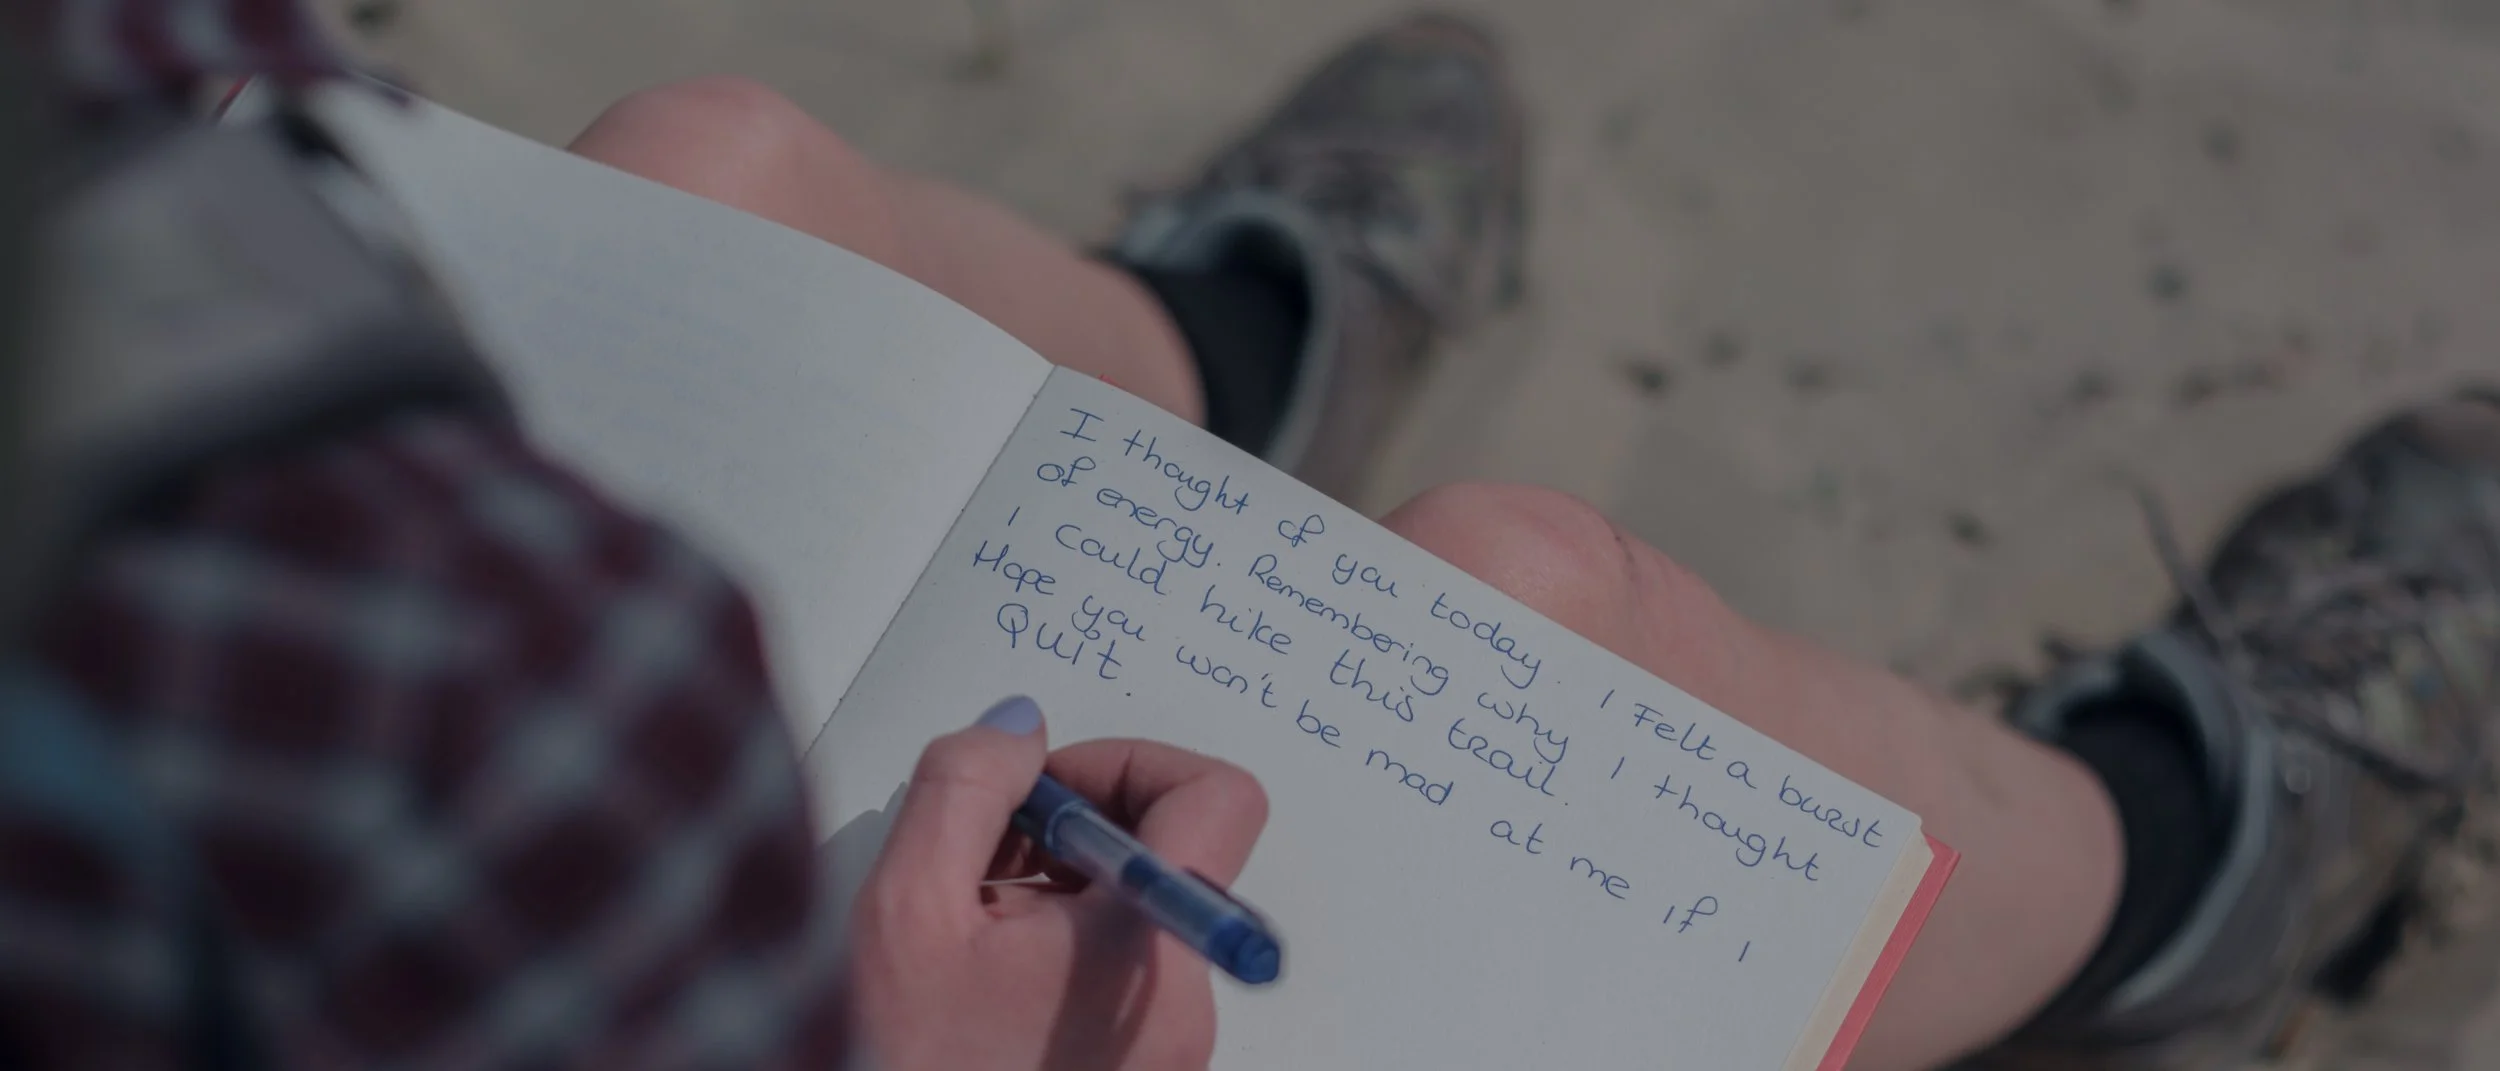 I thought of you today. I Felt a burst
of energy. Remembering why I thought
I could hike this trail.
Hope you won't be mad at me if I
Quit.